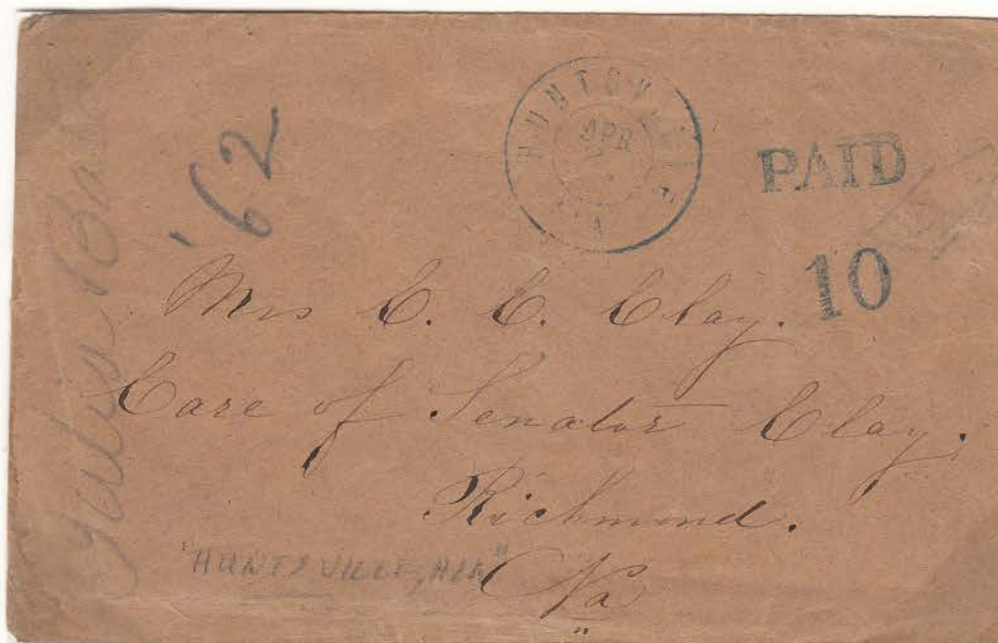 HUNTSVILLE
APR
PAID
10
'62
Mrs C. C. Clay.
Care of Senator Clay.
Richmond.
Va
"HUNTSVILLE, ALA"